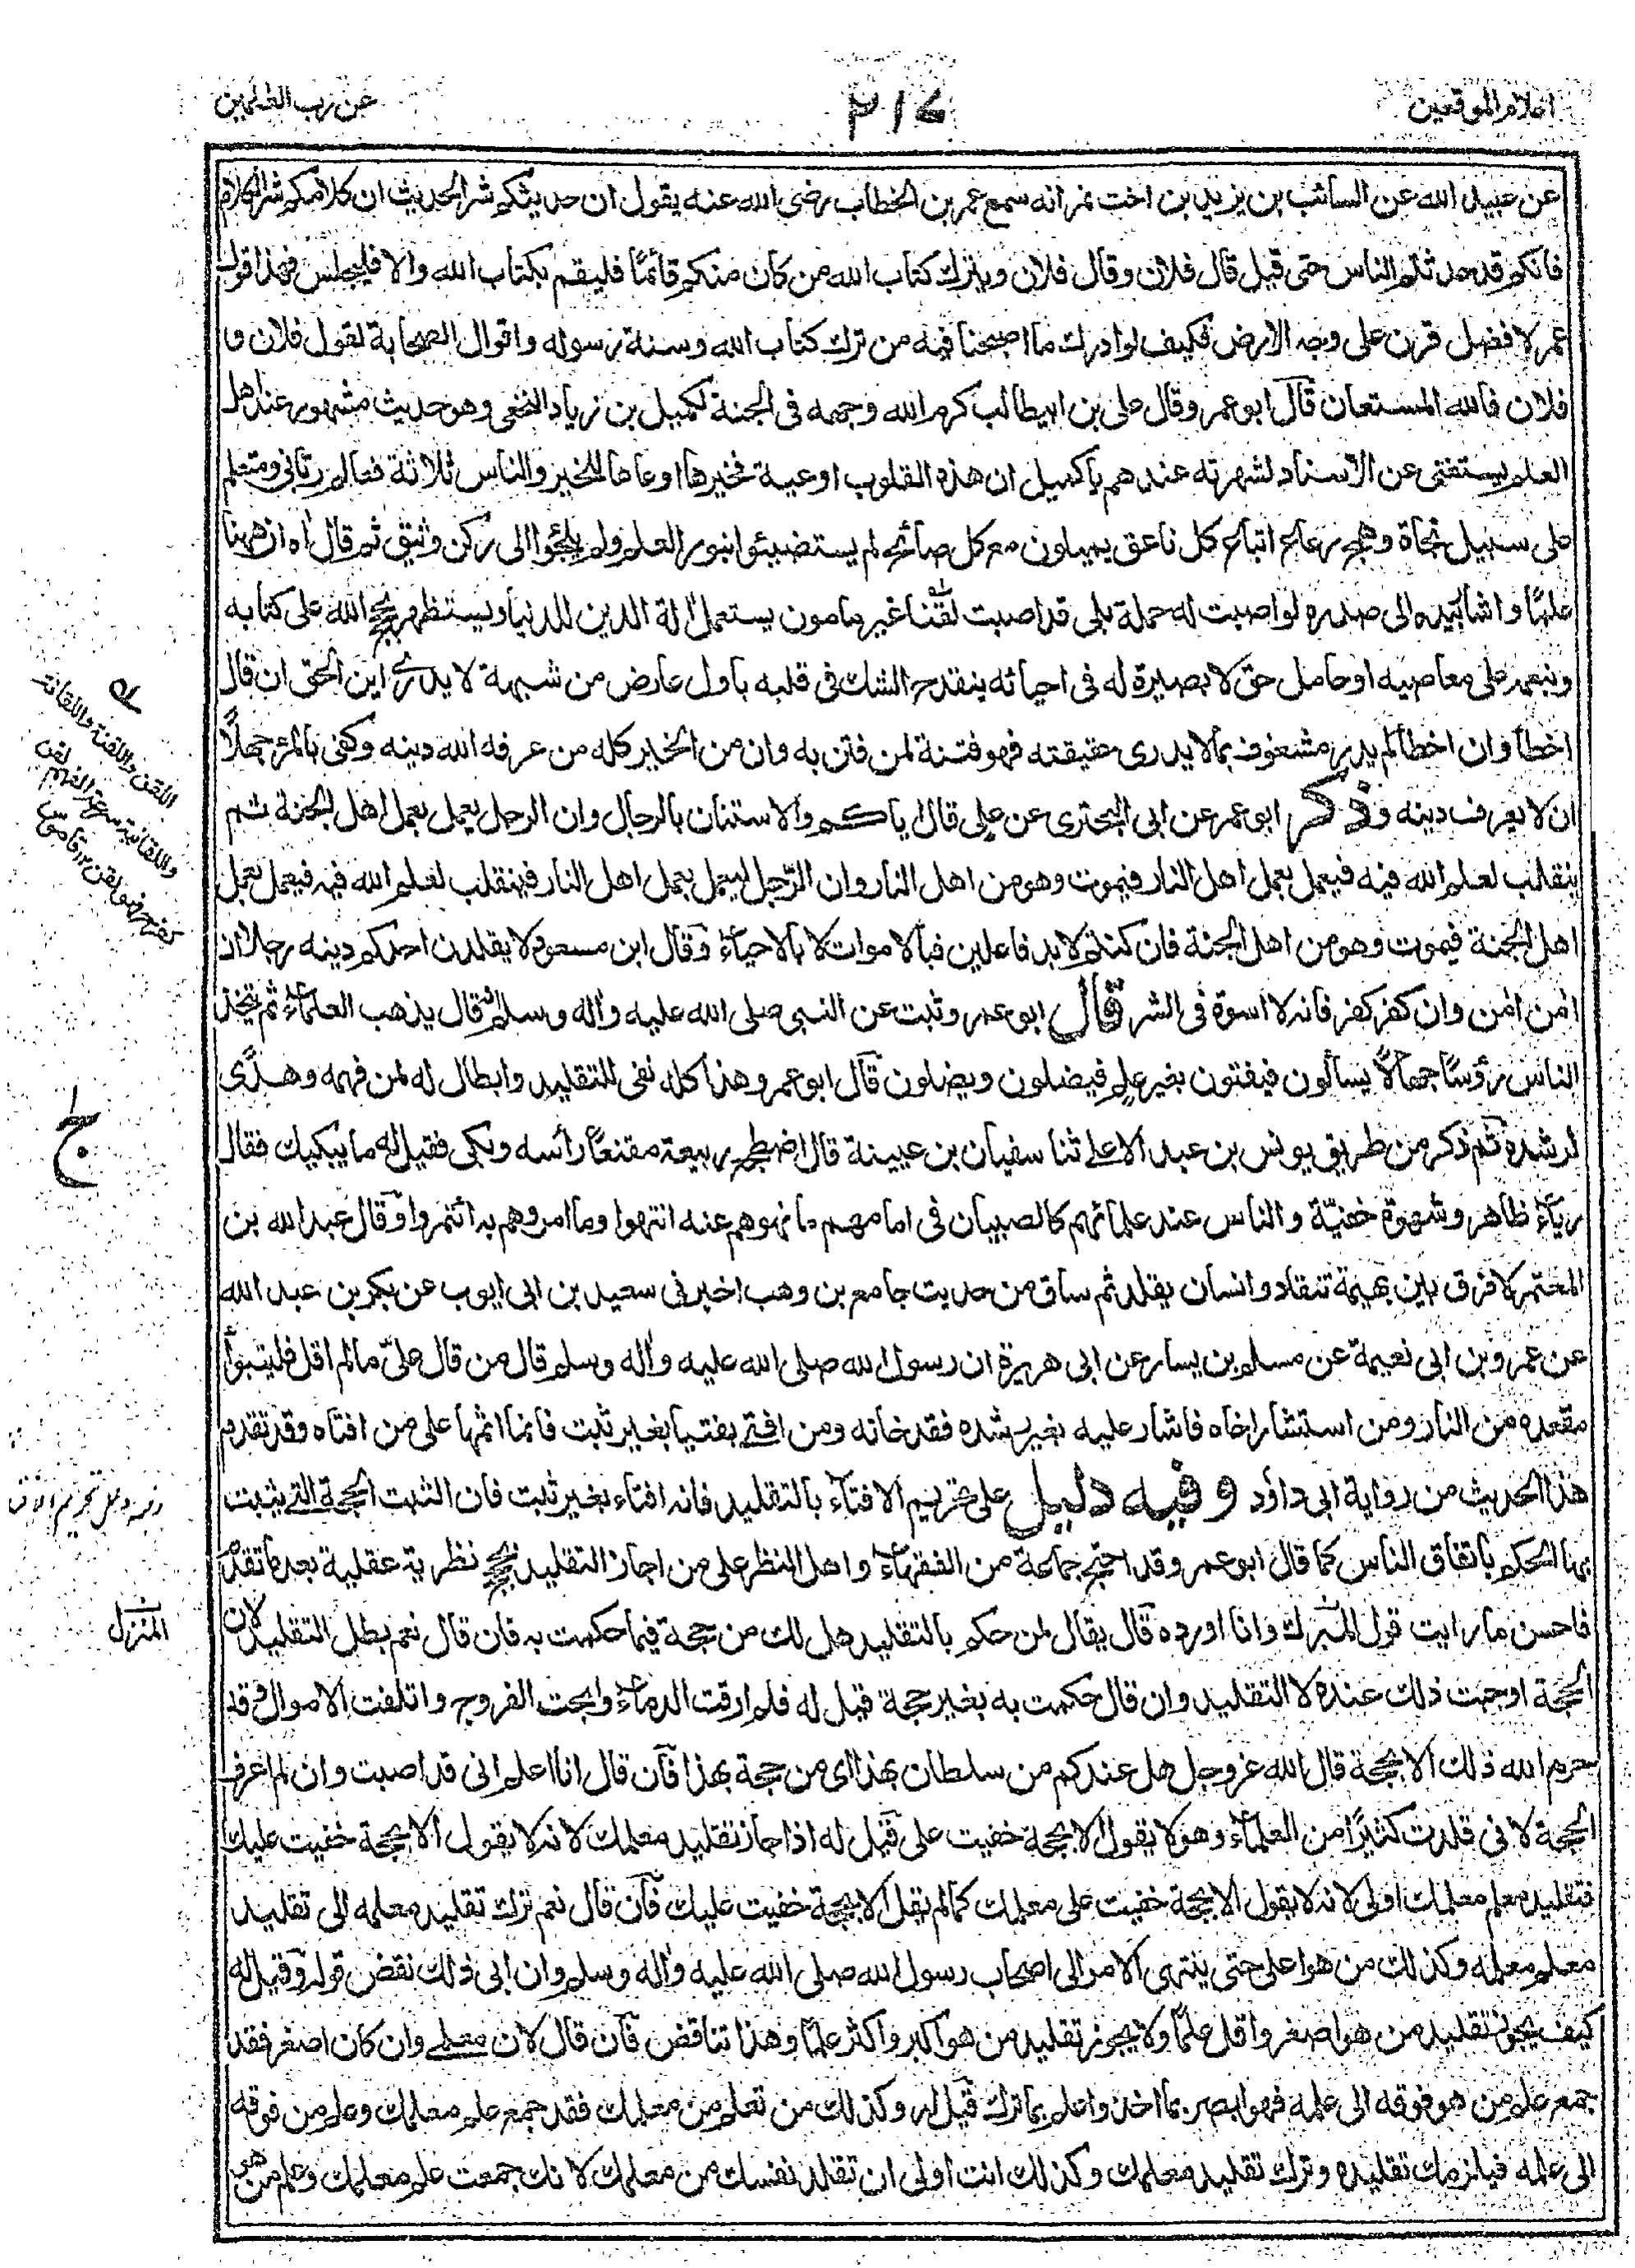 اعلام الموقعين
٢١٧
عن رب العلمين
عن عبيد الله عن السائب بن يزيد بن اخت نمر انه سمع عمر بن الخطاب رضى الله عنه يقول ان حديثكم شر الحديث ان كلامكم شر الكلام
فانكم قد حدثتم الناس حتى قيل قال فلان وقال فلان ويترك كتاب الله من كان منكم قائمًا فليقم بكتاب الله والا فليجلس فهذا قول
عمر لافضل قرن على وجه الارض فكيف لو ادرك ما اصبحنا فيه من ترك كتاب الله وسنة رسوله واقوال الصحابة لقول فلان و
فلان فالله المستعان قال ابو عمر وقال على بن ابيطالب كرم الله وجهه فى الجنة لكميل بن زياد النخعى وهو حديث مشهور عند اهل
العلم يستغنى عن الاسناد لشهرته عندهم يا كميل ان هذه القلوب اوعية فخيرها اوعاها للخير والناس ثلاثة فعالم ربانى ومتعلم
على سبيل نجاة وهمج رعاع اتباع كل ناعق يميلون مع كل صائح لم يستضيئوا بنور العلم ولم يلجئوا الى ركن وثيق ثم قال اه ان ههنا
علمًا واشار بيده الى صدره لو اصبت له حملة بلى قد اصبت لقنا غير مامون يستعمل الة الدين للدنيا ويستظهر بحجج الله على كتابه
وبنعمه على معاصيه او حامل حق لا بصيرة له فى احيائه ينقدح الشك فى قلبه باول عارض من شبهة لا يدرى اين الحق ان قال
اخطأ وان اخطأ لم يدر مشغوف بما لا يدرى حقيقته فهو فتنة لمن فتن به وان من الخير كله من عرفه الله دينه وكفى بالمرء جهلاً
ان لا يعرف دينه وذكر ابو عمر عن ابى البحترى عن على قال اياكم والاستنان بالرجال وان الرجل يعمل بعمل اهل الجنة ثم
ينقلب لعلم الله فيه فيعمل بعمل اهل النار فيموت وهو من اهل النار وان الرجل ليعمل بعمل اهل النار فينقلب لعلم الله فيه فيعمل بعمل
اهل الجنة فيموت وهو من اهل الجنة فان كنتم لا بد فاعلين فبالاموات لا بالاحياء وقال ابن مسعود لا يقلدن احدكم دينه رجلا ان
امن امن وان كفر كفر فانه لا اسوة فى الشر قال ابو عمر وثبت عن النبى صلى الله عليه واله وسلم قال يذهب العلماء ثم يتخذ
الناس رؤسًا جهالاً يسألون فيفتون بغير علم فيضلون ويضلون قال ابو عمر وهذا كله نفى للتقليد وابطال له لمن فهمه وهدى
لرشده ثم ذكر من طريق يونس بن عبد الاعلى ثنا سفيان بن عيينة قال اضطجع ربيعة مقنعًا رأسه وبكى فقيل له ما يبكيك فقال
رياء ظاهر وشهوة خفية والناس عند علمائهم كالصبيان فى امامهم ما نهوهم عنه انتهوا وما امروهم به ائتمروا وقال عبد الله بن
المعتمر لا فرق بين بهيمة تنقاد وانسان يقلد ثم ساق من حديث جامع بن وهب اخبرنى سعيد بن ابى ايوب عن بكر بن عبد الله
عن عمرو بن ابى نعيمة عن مسلم بن يسار عن ابى هريرة ان رسول الله صلى الله عليه واله وسلم قال من قال على مالم اقل فليتبوأ
مقعده من النار ومن استشار اخاه فاشار عليه بغير رشده فقد خانه ومن افتى بفتيا بغير ثبت فانما اثمها على من افتاه وقد تقدم
هذا الحديث من رواية ابى داؤد وفيه دليل على تحريم الافتاء بالتقليد فانه افتاء بغير ثبت فان الثبت الحجة التى يثبت
بها الحكم باتفاق الناس كما قال ابو عمر وقد احتج جماعة من الفقهاء واهل النظر على من اجاز التقليد بحجج نظرية عقلية بعد ما تقدم
فاحسن ما رايت قول المزنى وانا اورده قال يقال لمن حكم بالتقليد هل لك من حجة فيما حكمت به فان قال نعم بطل التقليد لان
الحجة اوجبت ذلك عنده لا التقليد وان قال حكمت به بغير حجة قيل له فلم ارقت الدماء وابحت الفروج واتلفت الاموال وقد
حرم الله ذلك الا بحجة قال الله عز وجل هل عندكم من سلطان بهذا اى من حجة بهذا فان قال انا اعلم انى قد اصبت وان لم اعرف
الحجة لانى قلدت كثيرًا من العلماء وهو لا يقول الا بحجة خفيت على قيل له اذا جاز تقليد معلمك لانه لا يقول الا بحجة خفيت عليك
فتقليد معلم معلمك اولى لانه لا يقول الا بحجة خفيت على معلمك كما لم يقل الا بحجة خفيت عليك فان قال نعم ترك تقليد معلمه الى تقليد
معلم معلمه وكذلك من هو اعلى حتى ينتهى الامر الى اصحاب رسول الله صلى الله عليه واله وسلم وان ابى ذلك نقض قوله وقيل له
كيف يجوز تقليد من هو اصغر واقل علمًا ولا يجوز تقليد من هو اكبر واكثر علمًا وهذا تناقض فان قال لان معلمى وان كان اصغر فقد
جمع علم من هو فوقه الى علمه فهو ابصر بما اخذ واعلم بما ترك قيل له وكذلك من تعلم من معلمك فقد جمع علم معلمك وعلم من فوقه
الى علمه فيلزمك تقليده وترك تقليد معلمك وكذلك انت اولى ان تقلد نفسك من معلمك لانك جمعت علم معلمك وعلم من هو
اللقن واللقنة واللقانة
واللقانية سرعة الفهم لقن
كفرح فهو لقن ١٢ قاموس
المنزل